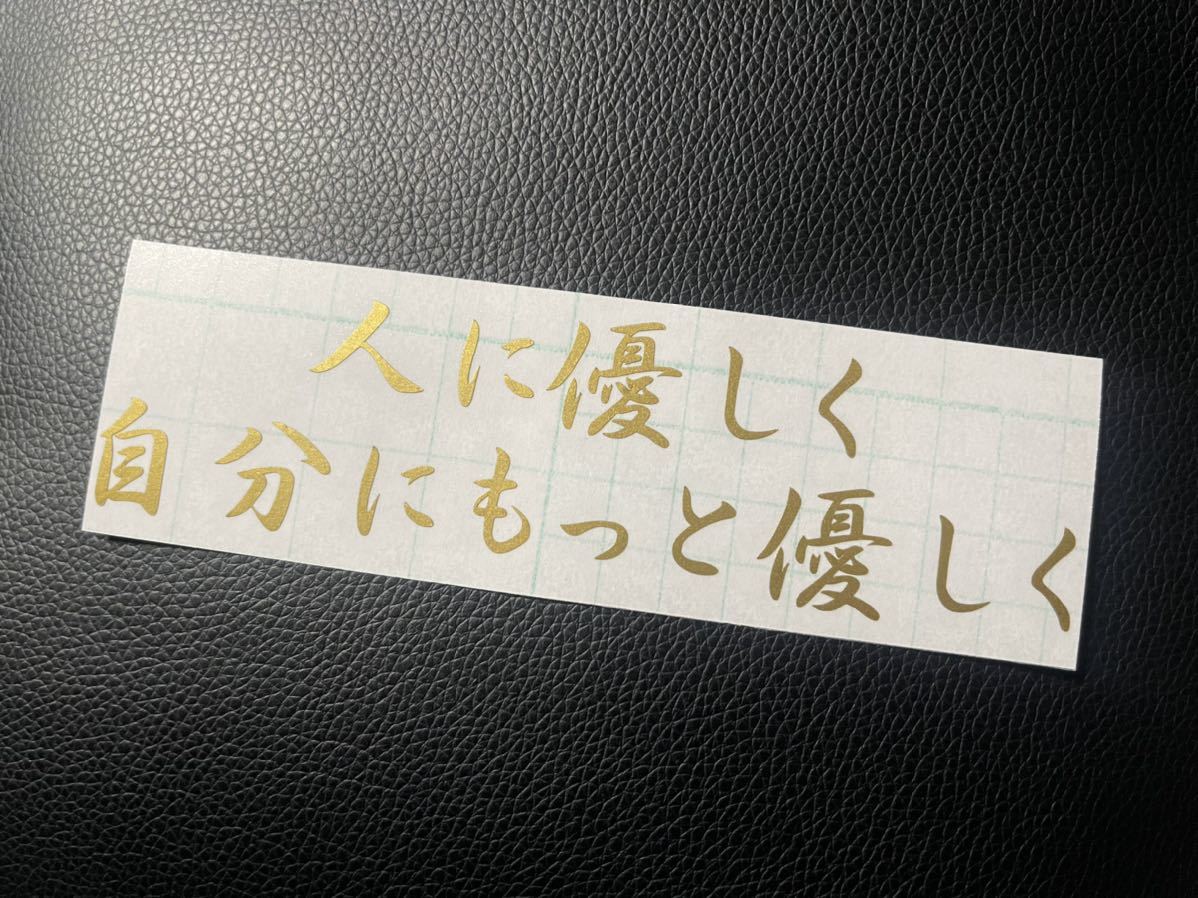 人に優しく
自分にもっと優しく